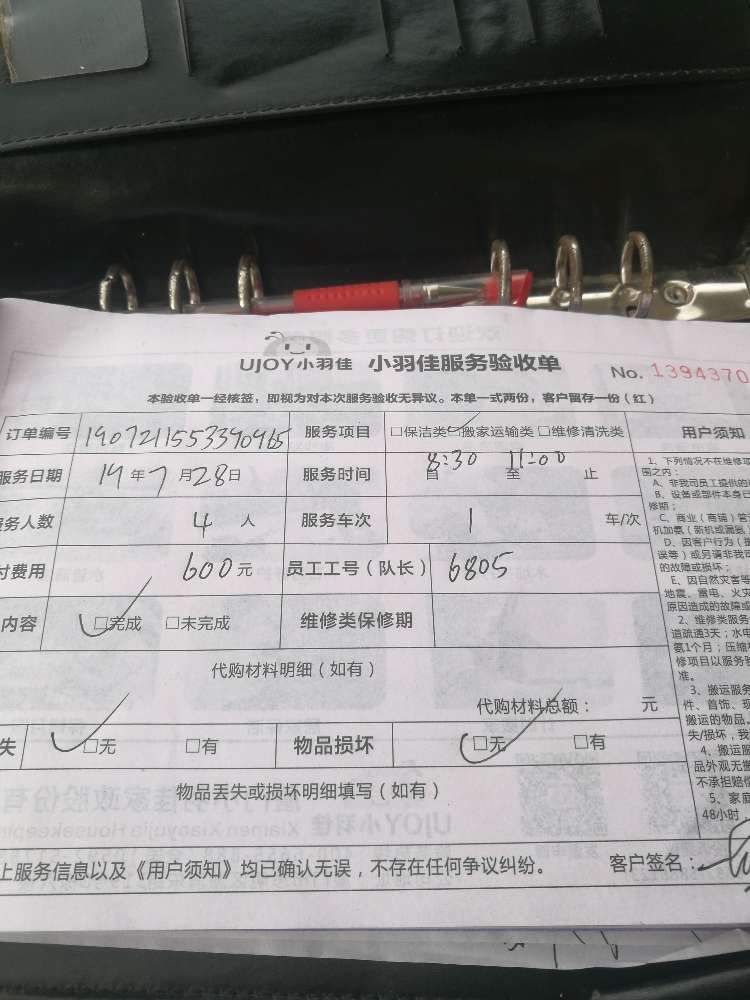 UJOY小羽佳 小羽佳服务验收单
No. 1394370
本验收单一经核签，即视为对本次服务验收无异议。本单一式两份，客户留存一份（红）
订单编号 1907211553390965 服务项目 □保洁类 ☑搬家运输类 □维修清洗类 用户须知
服务日期 19年7月28日 服务时间 自 8:30 至 11:00 止
务人数 4人 服务车次 1 车/次
付费用 600元 员工工号（队长） 6805
内容 ☑完成 □未完成 维修类保修期
代购材料明细（如有）
代购材料总额： 元
失 ☑无 □有 物品损坏 ☑无 □有
物品丢失或损坏明细填写（如有）
上服务信息以及《用户须知》均已确认无误，不存在任何争议纠纷。 客户签名：
1、下列情况不在维修项
围之内：
A、非我司员工提供的
B、设备或部件本身已
修期；
C、商业（商铺）管
机加氨（新机或漏氨
D、因客户行为（
误等）或另请非我司
的故障或损坏；
E、因自然灾害等
地震、雷电、火灾
原因造成的故障或
2、维修类服务
道疏通3天；水电
氨1个月；压缩
修项目以服务
准。
3、搬运服务
件、首饰、现
搬运的物品。
失/损坏，我
4、搬运服
品外观无
不承担赔偿
5、家庭
48小时